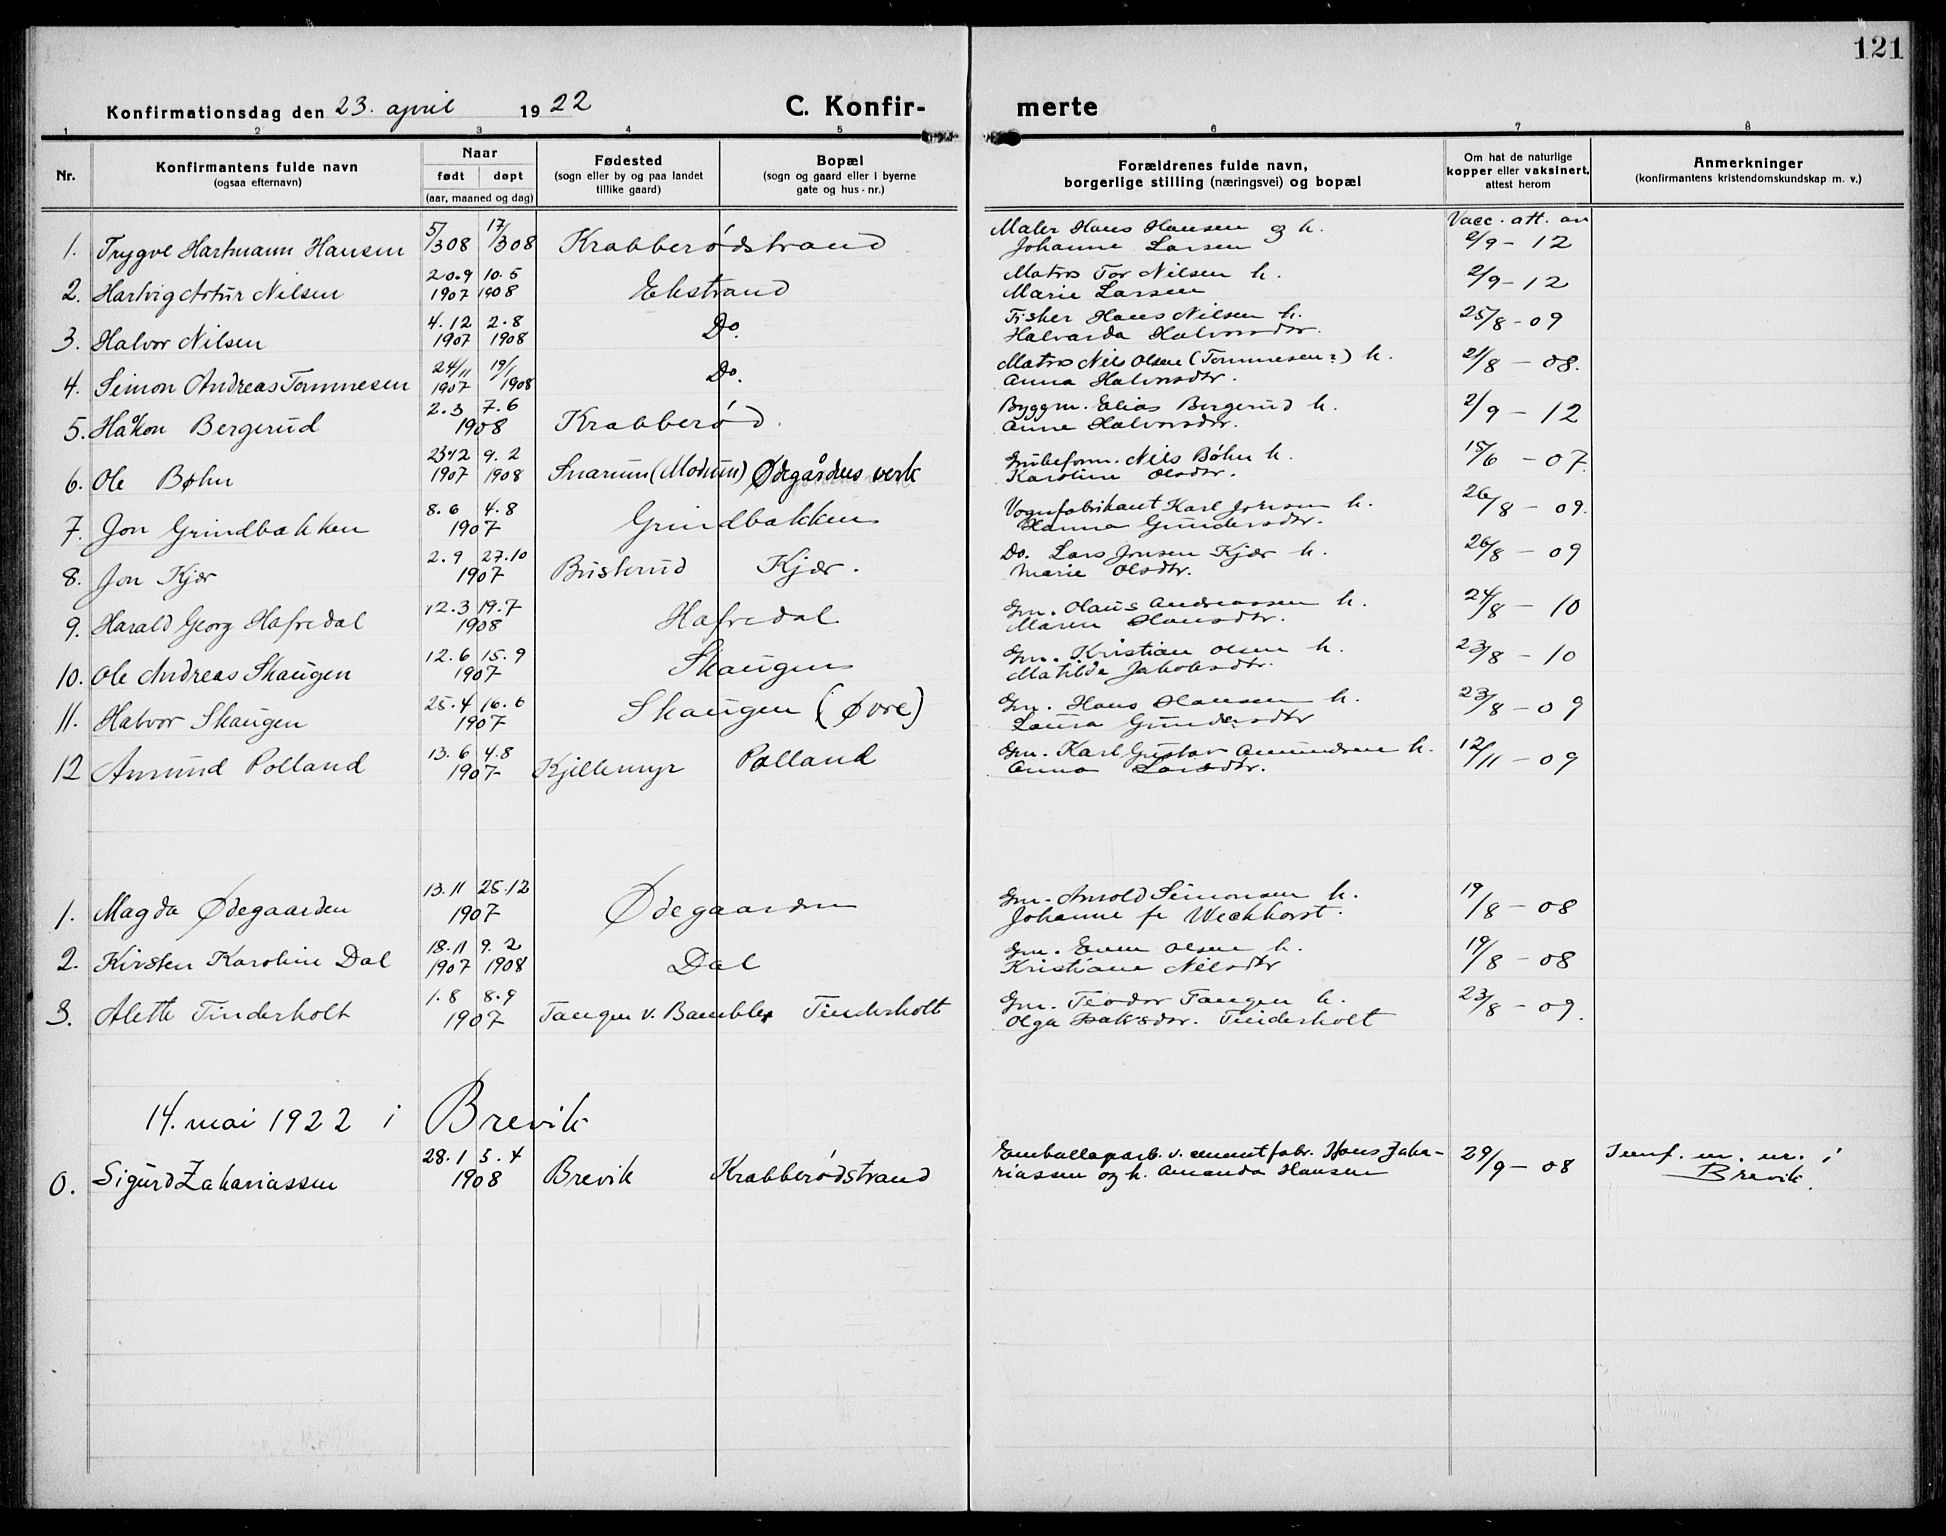 121
Konfirmationsdag den 23. april 1922 C. Konfir- merte
1 2 3 4 5 6 7 8
Nr. Konfirmantens fulde navn (ogsaa efternavn) Naar født døpt (aar, maaned og dag) Fødested (sogn eller by og paa landet tillike gaard) Bopæl (sogn og gaard eller i byerne gate og hus-nr.) Forældrenes fulde navn, borgerlige stilling (næringsvei) og bopæl Om hat de naturlige kopper eller vaksinert, attest herom Anmerkninger (konfirmantens kristendomskundskap m. v.)
1. Trygve Hartmann Hansen 5/3 08 17/3 08 Krabberødstrand Maler Hans Hansen og h. Johanne Larsen Vacc. att. av 2/9 - 12
2. Hartvig Artur Nilsen 20.9 1907 10.5 1908 Ekstrand Matros Tor Nilsen h. Marie Larsen 2/9 - 12
3. Halvor Nilsen 4.12 1907 2.8 1908 Do. Fisker Hans Nilsen h. Halvarda Halvorsdtr. 25/8 - 09
4. Simon Andreas Tommesen 24/11 1907 19/1 1908 Do. Matros Nils Olsen (Tommesen?) h. Anna Halvorsdtr. 21/8 - 08.
5. Håkon Bergerud 2.3 7.6 1908 Krabberød Byggm. Elias Bergerud h. Anne Halvorsdtr. 2/9 - 12
6. Ole Bøhn 23.12 1907 9.2 1908 Snarum (Modum) Ødegårdens verk Grubeform. Nils Bøhn h. Karoline Olsdtr. 15/6 - 07.
7. Jon Grindbakken 8.6 4.8 1907 Grindbakken Vognfabrikant Karl Jonsen h. Hanna Gundersdtr. 26/8 - 09.
8. Jon Kjær 2.9 27.10 1907 Busterud Kjær. Do. Lars Jonsen Kjær h. Marie Olsdtr. 26/8 - 09
9. Harald Georg Hafredal 12.3 19.7 1908 Hafredal Gm. Olaus Andreassen h. Maren Hansdtr. 24/8 - 10
10. Ole Andreas Skaugen 12.6 15.9 1907 Skaugen Gm. Kristian Olsen h. Matilde Jakobsdtr. 23/8 - 10
11. Halvor Skaugen 25.4 16.6 1907 Skaugen (Øvre) Gm. Hans Hansen h. Laura Gundersdtr 23/8 - 09
12 Amund Polland 13.6 4.8 1907 Kjillemyr Polland Gm. Karl Gustav Amundsen h. Anna Larsdtr. 12/11 - 09
1. Magda Ødegaarden 13.11 25.12 1907 Ødegaarden Gm. Arnold Simonsen h. Johanne f. Weckhorst. 19/8 - 08
2. Kirsten Karoline Dal 18.11 1907 9.2 1908 Dal Gm. Even Olsen h. Kristiane Nilsdtr 19/8 - 08
3. Alette Tinderholt 1.8 8.9 1907 Tangen v. Bamble Tinderholt Gm. Teodor Tangen h. Olga Isaksdtr. Tinderholt 23/8 - 09.
14. mai 1922 i Brevik
0. Sigurd Zakariassen 28.1 5.4 1908 Brevik Krabberødstrand Emballagearb. v. cementfabr. Hans Zaka-
riassen og h. Amanda Hansen 29/9 - 08 m. nr. i Brevik.